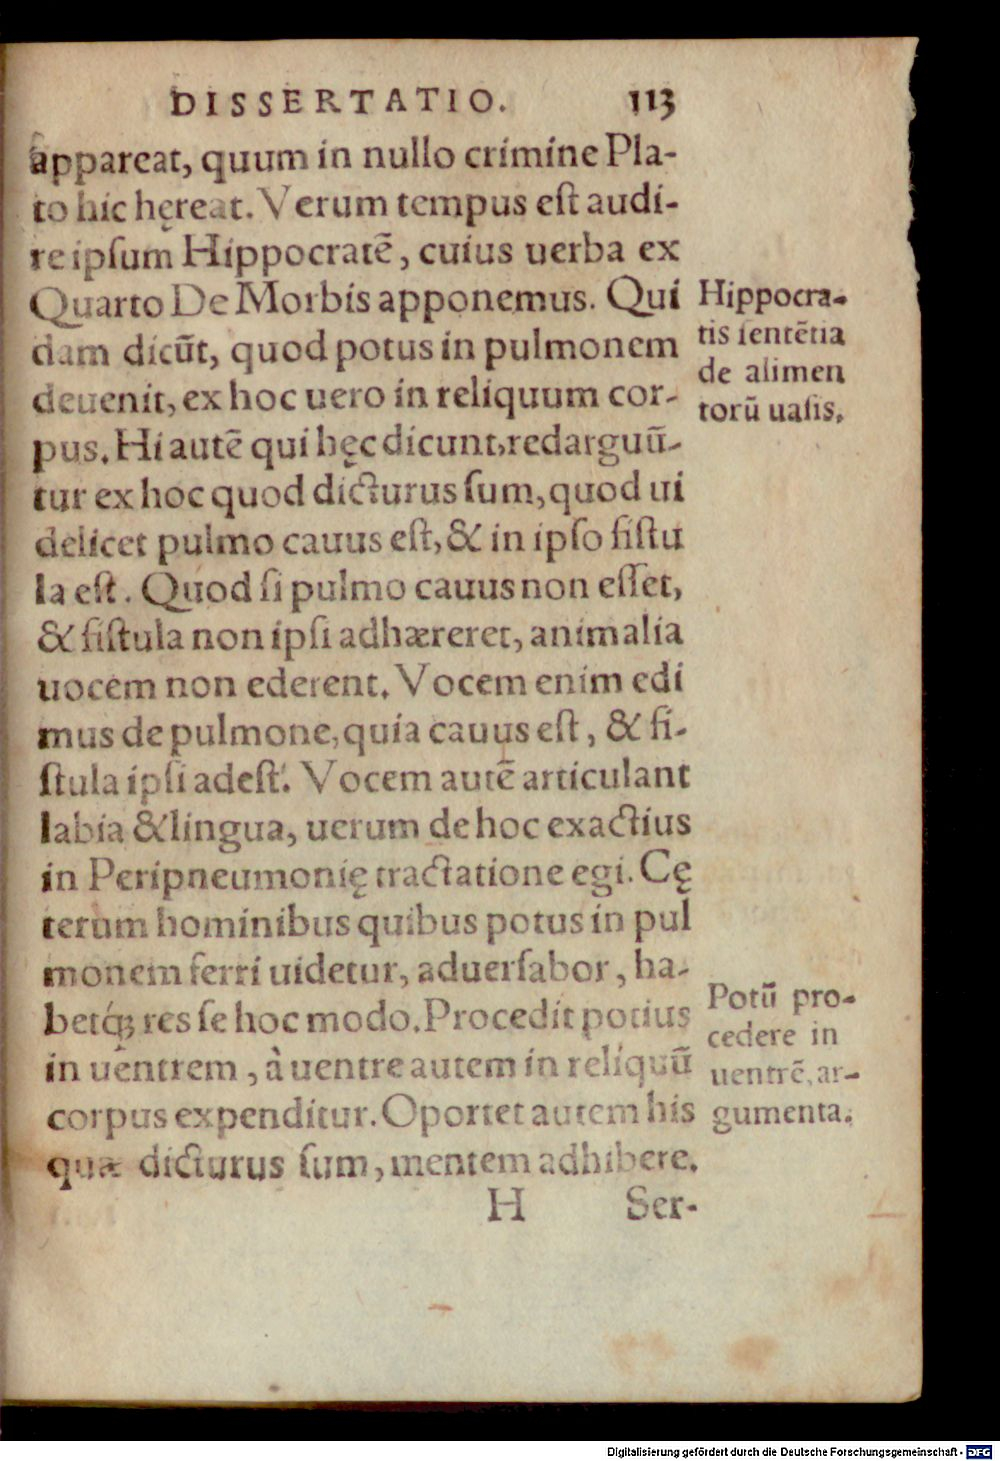 DISSERTATIO. 113
appareat, quum in nullo crimine Pla-
to hic hęreat. Verum tempus eſt audi-
re ipſum Hippocratē, cuius uerba ex
Quarto De Morbis apponemus. Qui
dam dicūt, quod potus in pulmonem
deuenit, ex hoc uero in reliquum cor-
pus. Hi autē qui hęc dicunt, redarguū-
tur ex hoc quod dicturus ſum, quod ui
delicet pulmo cauus eſt, & in ipſo fiſtu
la eſt. Quod ſi pulmo cauus non eſſet,
& fiſtula non ipſi adhæreret, animalia
uocem non ederent. Vocem enim edi
mus de pulmone, quia cauus eſt, & fi-
ſtula ipſi adeſt. Vocem autē articulant
labia & lingua, uerum de hoc exactius
in Peripneumonię tractatione egi. Cę
terum hominibus quibus potus in pul
monem ferri uidetur, aduerſabor, ha-
betq́; res ſe hoc modo. Procedit potius
in uentrem, à uentre autem in reliquū
corpus expenditur. Oportet autem his
quæ dicturus ſum, mentem adhibere.
H Ser-
Hippocra-
tis ſentētia
de alimen
torū uaſis.
Potū pro-
cedere in
uentrē, ar-
gumenta.
Digitalisierung gefördert durch die Deutsche Forschungsgemeinschaft - DFG